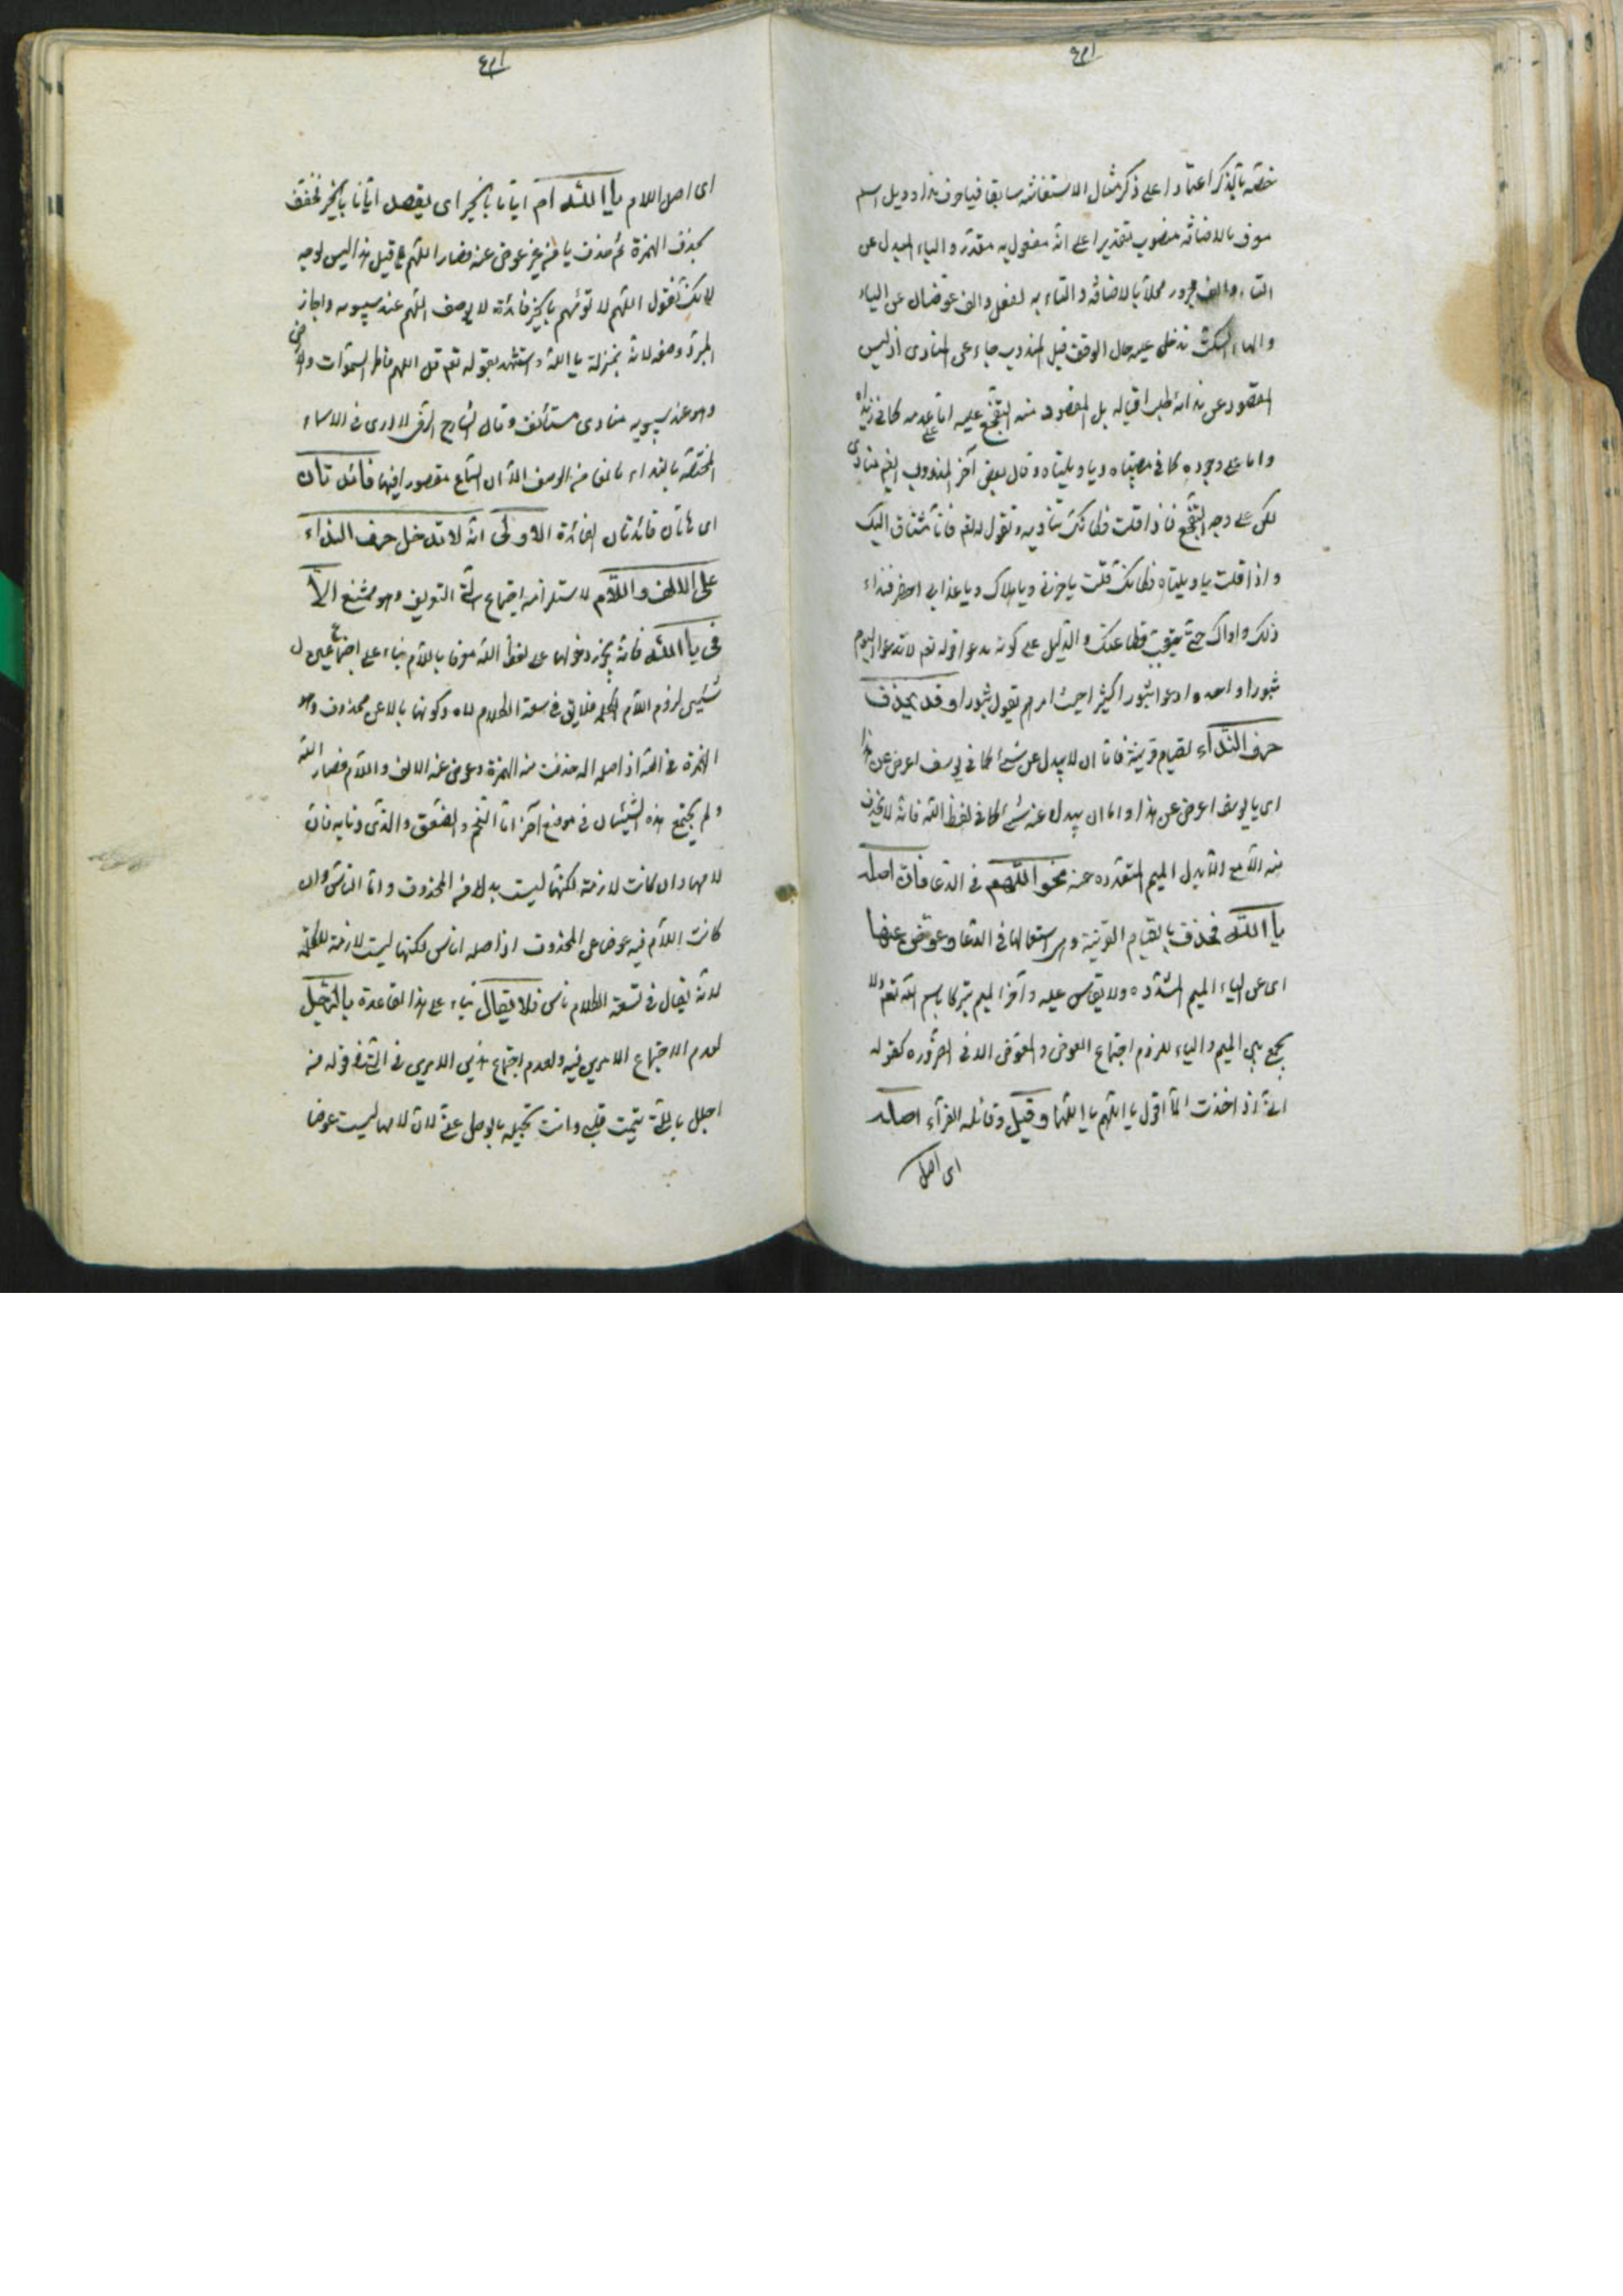 خصّه بالذكر اعتمادا على ذكر مثال الاستغاثة سابقا فيا حرف نداء وويل اسم
معرف بالاضافة منصوب تقديرا على انه مفعول به مقدر و الياء المبدل عن
التاء والالف مجرور محلا بالاضافة والتاء به لفعل والف عوضان عن الياء
والهاء السكت تدخل عليه حال الوقف قيل المندوب جاء عن المنادى اذ ليس
المقصود عن ندائه طلب اقباله بل المقصود منه التفجع عليه اما على عدمه كما في زيداه
واما على وجوده كما في مصيبتاه ويا ويلتاه وقال بعض آخر المندوب ايضا منادى
لكن على وجه التفجع فاذا قلت فكانك تناديه وتقول له تعم فانا مشتاق اليك
واذا قلت يا ويلتاه فكانك قلت يا حزني ويا هلاك ويا عذابي احضر فنداء
ذلك واواك حتى يتعجب قطاعتك والدليل على كونه مدعوا قوله تعم لا تدعوا اليوم
ثبورا واحدا وادعوا ثبورا كثيرا حيث امرهم بقول ثبورا وقد يحذف
حرف النداء لقيام قرينة فاما ان لا يبدل عن شئ كما في يوسف اعرض عن هذا
اى يا يوسف اعرض عن هذا واما ان يبدل عنه شئ كما في لفظ الله فانه لا يحذف
منه الا مع ابدال الميم المشددة عنه نحو اللهم في الدعا فان اصله
يا الله فحذف يا لقيام القرينة وهي استعمالها في الدعا وعوض عنها
اى عن الياء الميم المشددة ولا يقاس عليه وآخر الميم تبركا باسم الله تعم ولا
يجمع بين الميم والياء للزوم اجتماع العوض والمعوض الا في الضرورة كقوله
انى اذا حدث الما اقول يا اللهم يا اللهما وقيل وقائله الفراء اصله
اى اصل
اى اصل اللهم يا الله ام ايانا بالخير اى يقصد ايانا بالخير فخفف
بحذف الهمزة ثم حذف يا من غير عوض عنه فصار اللهم قيل هذا ليس لوجه
لانك تقول اللهم لا تؤمهم بالخير فائدة لا يوصف اللهم عند سيبويه واجاز
المبرد وصفه لانه بمنزلة يا الله واستشهد بقوله تعم قل اللهم فاطر السموات والارض
وهو عند سيبويه منادى مستأنف وقال الشارح الرضى لا ارى في الاسماء
المختصة بالنداء مانعا من الوصف الا ان السماع مقصور فيها فائدتان
اى هاتان فائدتان الفائدة الاولى انه لا تدخل حرف النداء
على الالف واللام لاستلزامه اجتماع التى التعريف وهو ممتنع الا
في يا الله فانه يجوز دخولها على لفظ الله معرفا باللام بناء على اجتماع
شيئين لزوم اللام الكلمة فلا يق في سعة الكلام لاه وكونها بدلا عن محذوف وهو
الهمزة في الله اذ اصله اله حذفت منه الهمزة وعوض عنه الالف واللام فصار الله
ولم يجتمع هذه الشيئان في موضع آخر اما النجم والصعق والذى وبابه فان
لامها وان كانت لازمة لكنها ليست بدلا من المحذوف واما الناس وان
كانت اللام فيه عوضا عن المحذوف اذ اصله اناس لكنها ليست لازمة للكلمة
لانه يقال في سعة الكلام ناس فلا يقال بناء على هذا القاعدة يا الرجل
لعدم الاجتماع الامرين فيه ولعدم اجتماع هذين الامرين في الشذ قوله من
اجلك يا التى تيمت قلبى وانت بخيلة بالوصل عنى لان لامها ليست عوضا